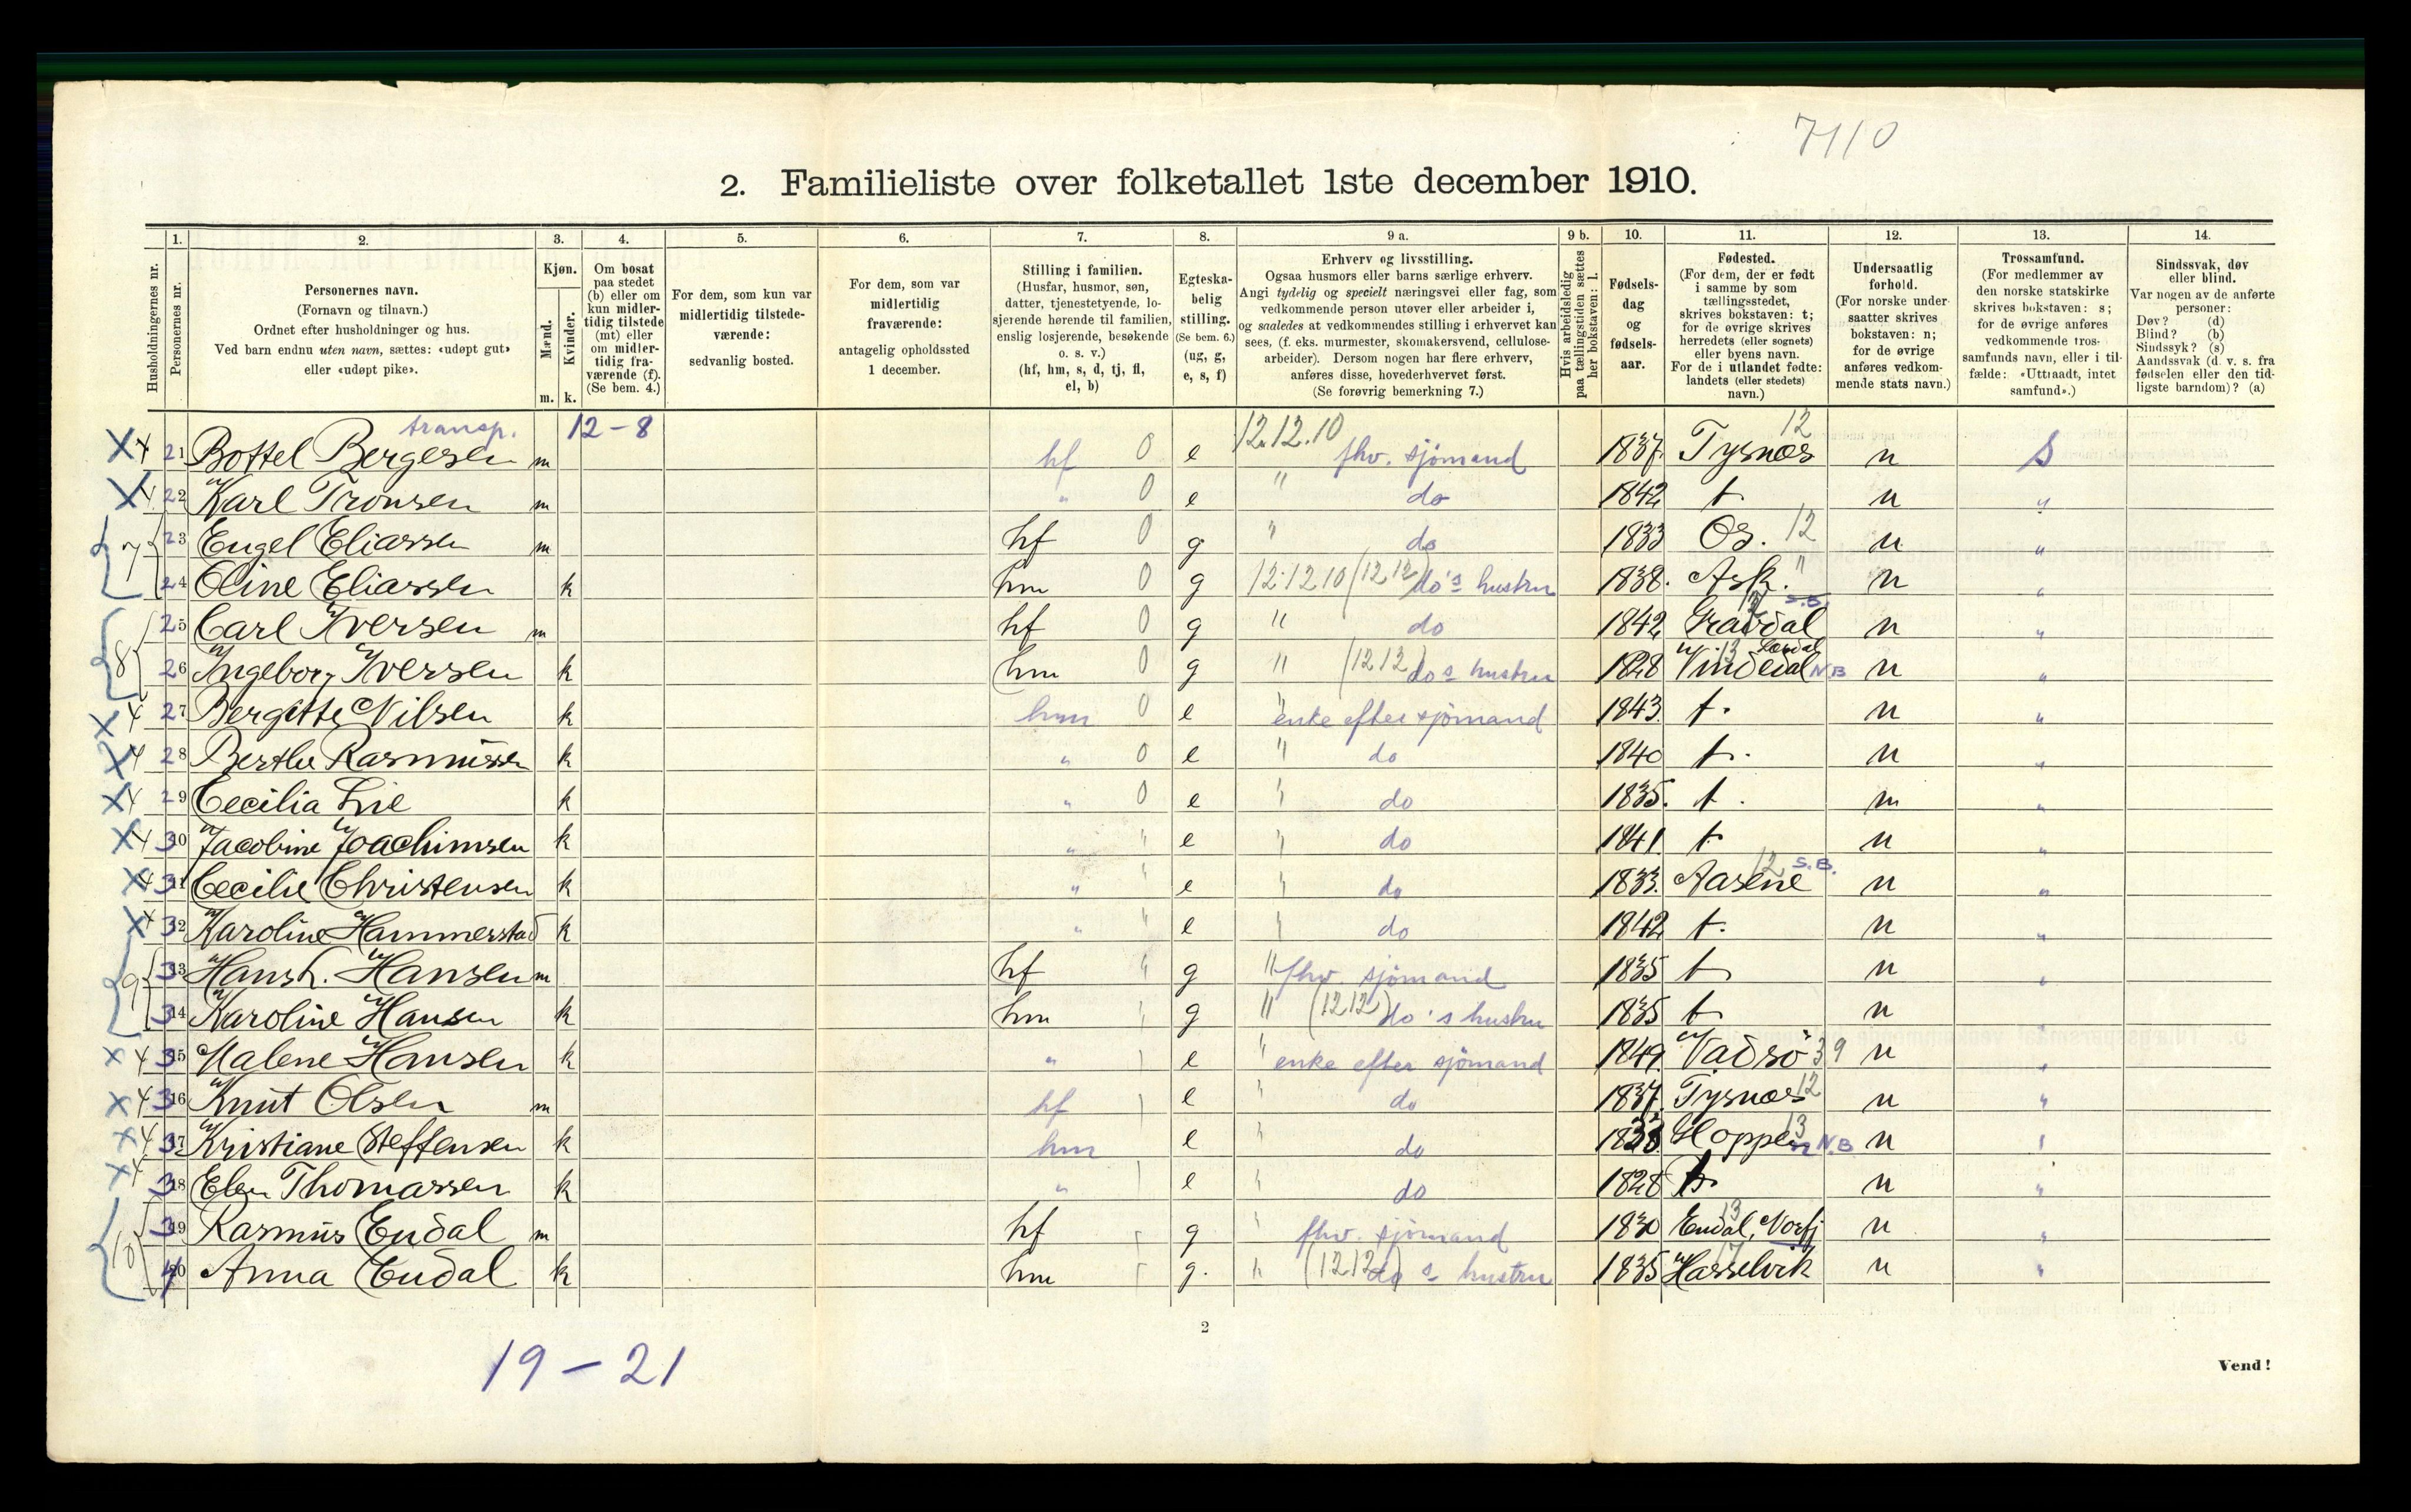 7110
2. Familieliste over folketallet 1ste december 1910.
Husholdningernes nr.
1. Personernes nr.
2. Personernes navn.
(Fornavn og tilnavn.)
Ordnet efter husholdninger og hus.
Ved barn endnu uten navn, sættes: «udøpt gut»
eller «udøpt pike».
3. Kjøn.
Mænd. m.
Kvinder. k.
4. Om bosat
paa stedet
(b) eller om
kun midler-
tidig tilstede
(mt) eller
om midler-
tidig fra-
værende (f).
(Se bem. 4.)
5. For dem, som kun var
midlertidig tilstede-
værende:
sedvanlig bosted.
6. For dem, som var
midlertidig
fraværende:
antagelig opholdssted
1 december.
7. Stilling i familien.
(Husfar, husmor, søn,
datter, tjenestetyende, lo-
sjerende hørende til familien,
enslig losjerende, besøkende
o. s. v.)
(hf, hm, s, d, tj, fl,
el, b)
8. Egteska-
belig
stilling.
(Se bem. 6.)
(ug, g,
e, s, f)
9 a. Erhverv og livsstilling.
Ogsaa husmors eller barns særlige erhverv.
Angi tydelig og specielt næringsvei eller fag, som
vedkommende person utøver eller arbeider i,
og saaledes at vedkommendes stilling i erhvervet kan
sees, (f. eks. murmester, skomakersvend, cellulose-
arbeider). Dersom nogen har flere erhverv,
anføres disse, hovederhvervet først.
(Se forøvrig bemerkning 7.)
9 b. Hvis arbeidsledig
paa tællingstiden sættes
her bokstaven: l.
10. Fødsels-
dag
og
fødsels-
aar.
11. Fødested.
(For dem, der er født
i samme by som
tællingsstedet,
skrives bokstaven: t;
for de øvrige skrives
herredets (eller sognets)
eller byens navn.
For de i utlandet fødte:
landets (eller stedets)
navn.)
12. Undersaatlig
forhold.
(For norske under-
saatter skrives
bokstaven: n;
for de øvrige
anføres vedkom-
mende stats navn.)
13. Trossamfund.
(For medlemmer av
den norske statskirke
skrives bokstaven: s;
for de øvrige anføres
vedkommende tros-
samfunds navn, eller i til-
fælde: «Uttraadt, intet
samfund».)
14. Sindssvak, døv
eller blind.
Var nogen av de anførte
personer:
Døv? (d)
Blind? (b)
Sindssyk? (s)
Aandssvak (d. v. s. fra
fødselen eller den tid-
ligste barndom)? (a)
transp. 12-8
X 4 21 Bottel Bergesen m hf 0 e 12.12.10 fhv. sjömand 1837. Tysnæs 12 n s
X 4 22 Karl Tronsen m " 0 e " do 1842 t n "
7 23 Engel Eliassen m hf 0 g " do 1833 Os. 12 n "
24 Oline Eliassen k hm 0 g 12.12.10 (12 12) do's hustru 1838. Ask. " S.B. n "
8 25 Carl Iversen m hf 0 g " do 1842 Gravdal 12 n "
26 Ingeborg Iversen k hm 0 g " (12 12) do s hustru 1828 Vindeial 13 N.B n "
X 4 27 Bergitte Nilsen k hm 0 e " enke efter sjömand 1843. t. n "
X 4 28 Berthe Rasmussen k " 0 e " do 1840 t. n "
X 4 29 Cecilia Lie k " 0 e " do 1835. t. n "
X 4 30 Jacobine Joachimsen k " " e " do 1841. t n "
X 4 31 Cecilie Christensen k " " e " do 1833. Aasene 12 S.B. n "
X 4 32 Karoline Hammerstad k " " e " do 1842 t. n "
9 33 Hans H. Hansen m hf " g " fhv. sjömand 1835 t n "
34 Karoline Hansen k hm " g " (12 12) do's hustru 1835 t n "
X 4 35 Malene Hansen k " " e " enke efter sjömand 1849. Vadsö 39 n "
X 4 36 Knut Olsen m hf " e " do 1837. Tysnæs 12 n "
X 4 37 Kristiane Steffensen k hm e " do Hoppe 13 N.B n "
X 4 38 Elen Thomassen k " " e " do 1828 t. n "
10 39 Rasmus Eudal m hf " g " fhv. sjömand 1830 Eudal, Vosfj 13 n "
40 Anna Eudal k hm " g. " (12 12) do s hustru 1835 Hasselvik 17 n "
2
19-21
Vend!